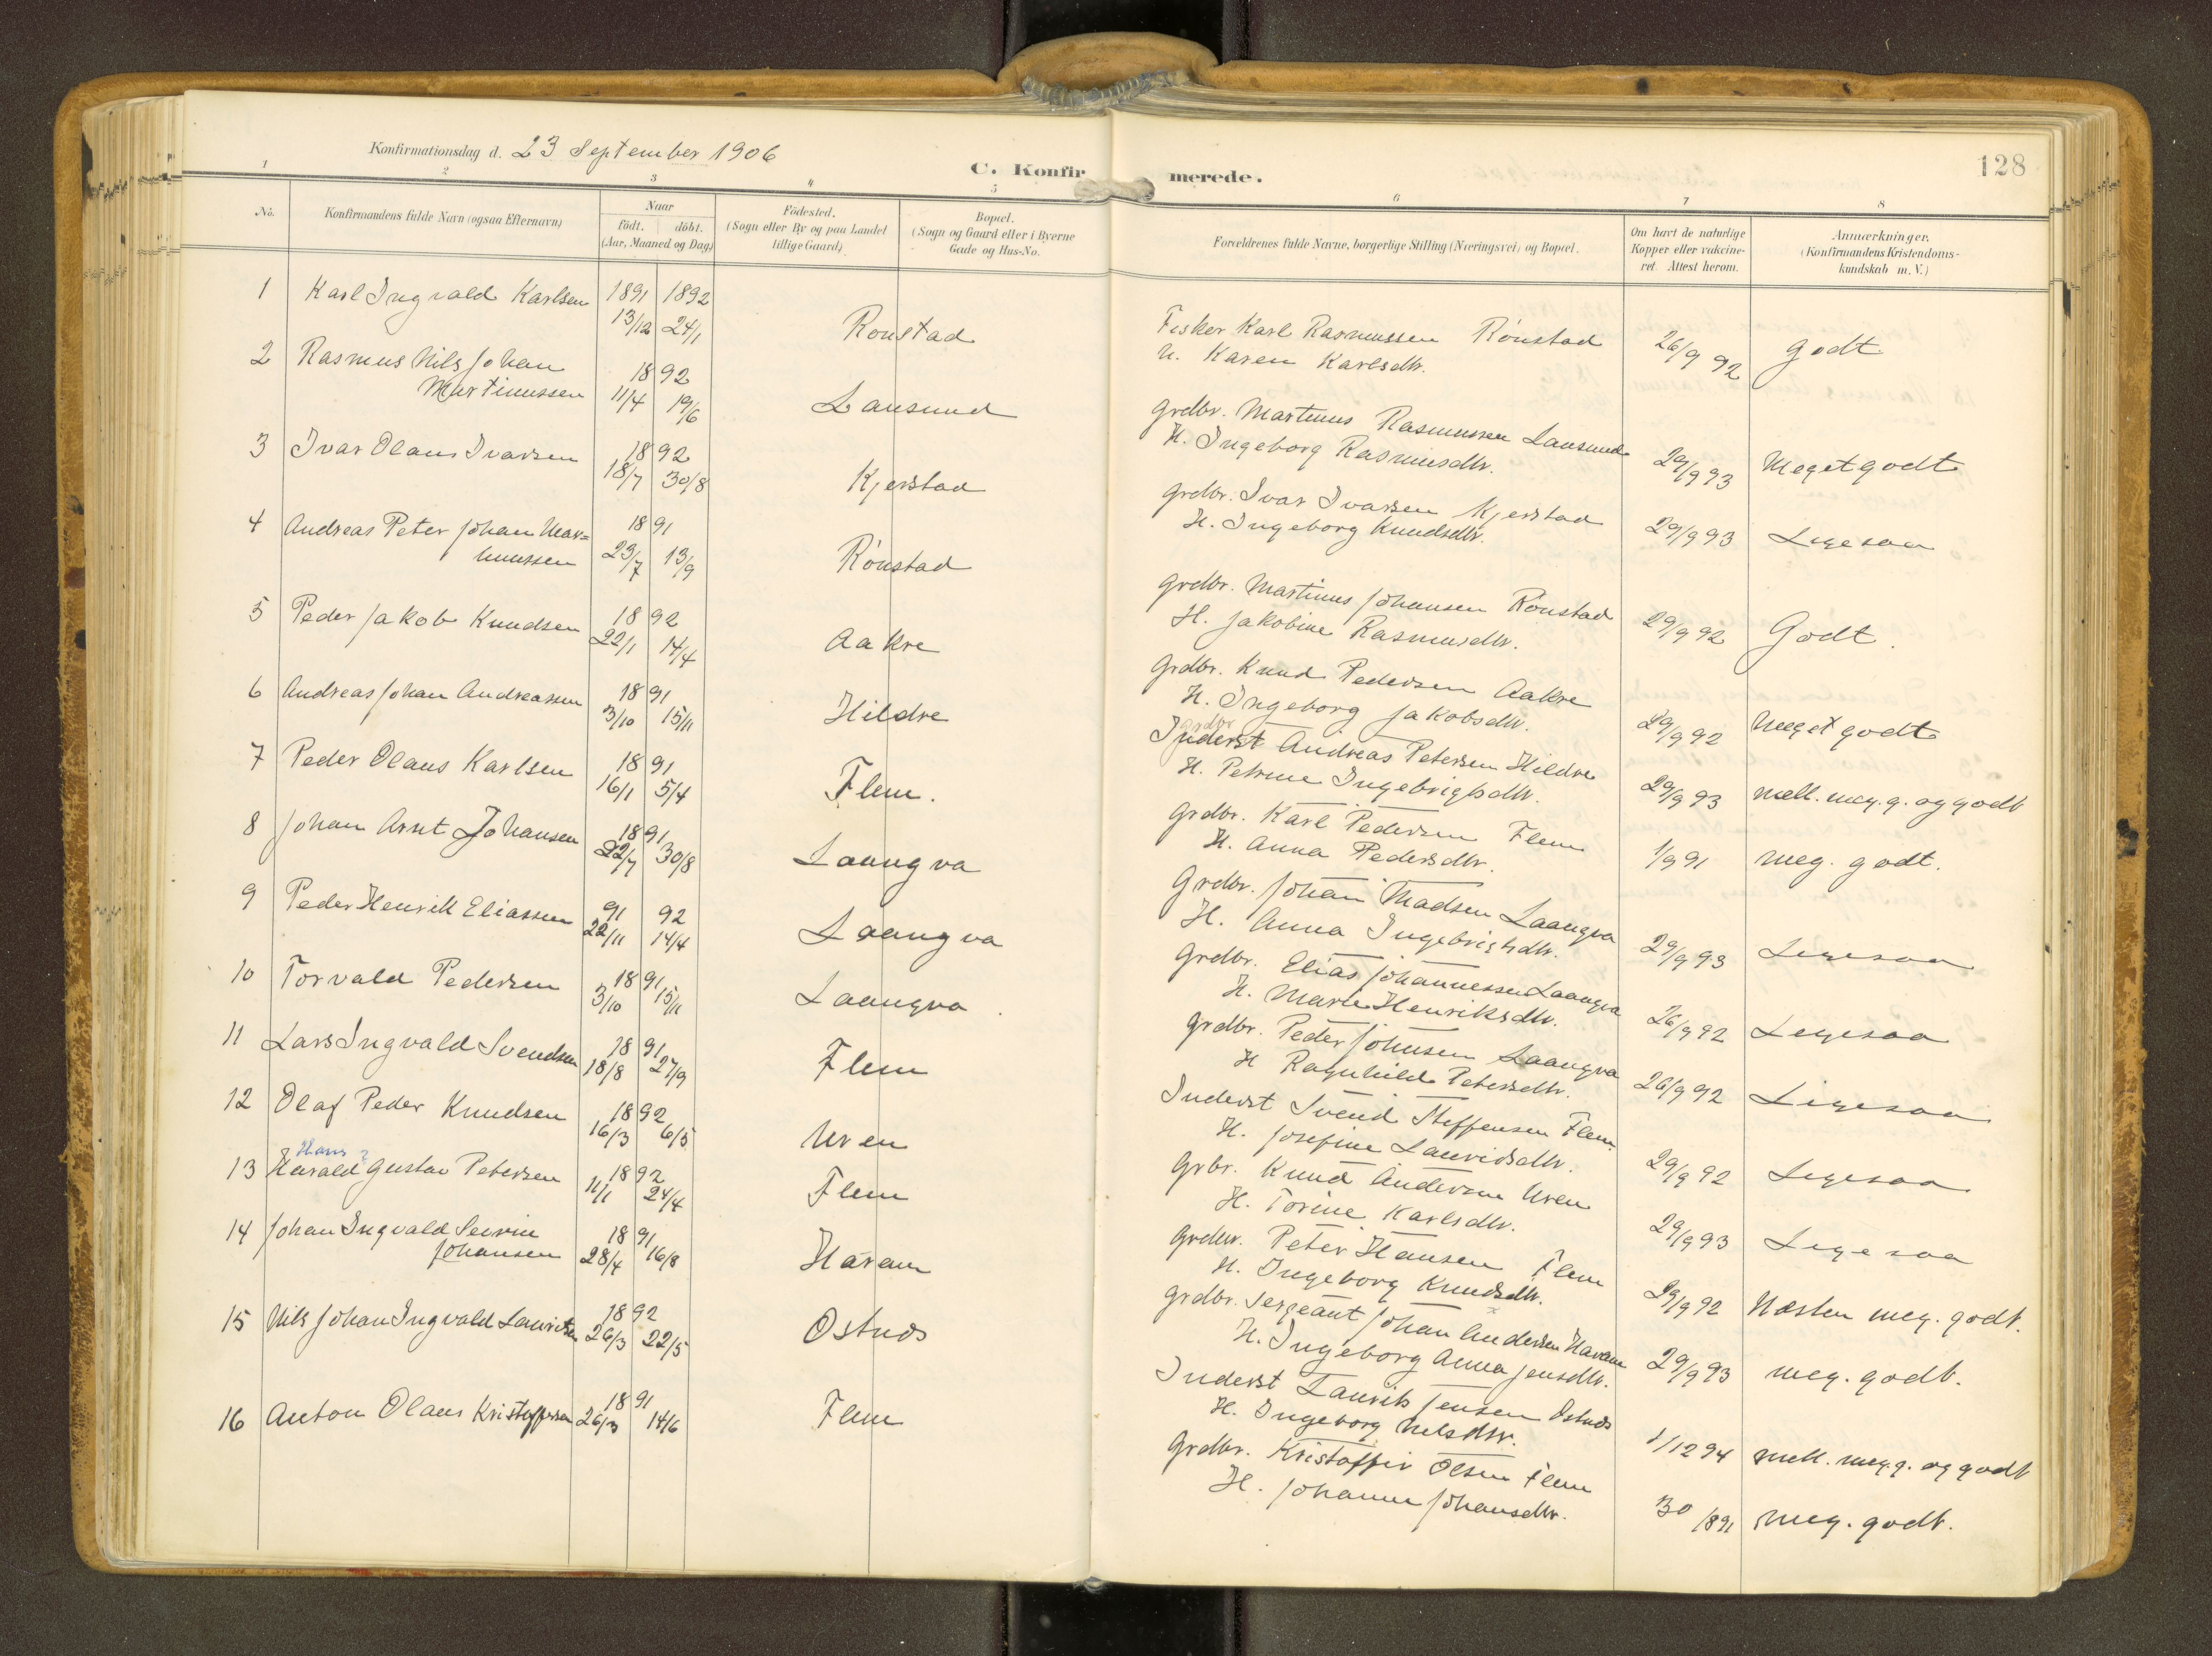 Konfirmationsdag d. 23 September 1906
C. Konfirmerede.
128
1 2 3 4 5 6 7 8
No.
Konfirmandens fulde Navn (ogsaa Efternavn)
Naar
födt. döbt.
(Aar, Maaned og Dag)
Födested.
(Sogn eller By og paa Landet
tillige Gaard)
Bopæl.
(Sogn og Gaard eller i Byerne
Gade og Hus-No.
Forældrenes fulde Navne, borgerlige Stilling (Næringsvei) og Bopæl.
Om havt de naturlige
Kopper eller vakcine-
ret. Attest herom.
Anmærkninger.
(Konfirmandens Kristendoms-
kundskab m. V.)
1 Karl Ingvald Karlsen 1891 1892
13/12 24/1 Ronstad
Fisker Karl Rasmussen Rönstad 26/9 92 Godt
H. Karen Karlsdtr.
2 Rasmus Nils Johan 1892
Martinussen 11/4 19/6 Lausund
Grdbr. Martinus Rasmussen Lausund 29/9 93 Meget godt
H. Ingeborg Rasmusdtr.
3 Ivar Olaus Ivarsen 1892
18/7 30/8 Kjerstad
Grdbr. Ivar Ivarsen Kjerstad 29/9 93 Ligesaa
H. Ingeborg Knudsdtr.
4 Andreas Peter Johan Mar=
tinussen 1891
23/7 13/9 Rönstad
Grdbr. Martinus Johansen Rönstad 29/9 92 Godt.
H. Jakobine Rasmusdtr.
5 Peder Jakob Knudsen 1892
22/1 14/4 Aakre
Grdbr. Knud Pedersen Aakre 29/9 92 Meget godt
H. Ingeborg Jakobsdtr.
6 Andreas Johan Andreassen 1891
3/10 15/11 Hildre
Grdbr
Inderst Andreas Petersen Hildre 29/9 93 mell. meg. g. og godt
H. Petrine Ingebrigtsdtr.
7 Peder Olaus Karlsen 1891
16/1 5/4 Flem.
Grdbr. Karl Pedersen Flem 1/9 91 meg. godt.
H. Anna Pedersdtr.
8 Johan Arnt Johansen 1891
22/7 30/8 Laangva
Grdbr. Johan Madsen Laangva 29/9 93 Ligesaa
H. Anna Ingebrigtsdtr.
9 Peder Henrik Eliassen 91 92
22/11 14/4 Laangva
Grdbr. Elias Johannessen Laangva 26/9 92 Ligesaa
H. Marie Henriksdtr.
10 Torvald Pedersen 1891
3/10 15/11 Laangva
Grdbr. Peder Johnsen Laangva 26/9 92 Ligesaa
H Ragnhild Petersdtr.
11 Lars Ingvald Svendsen 1891
18/8 27/9 Flem
Inderst Svend Steffensen Flem. 29/9 92 Ligesaa
H. Josefine Lauridsdtr.
12 Olaf Peder Knudsen 1892
16/3 6/5 Uren
Grbr. Knud Andersen Uren 29/9 93 Ligesaa
H. Torine Karlsdtr.
Hans ?
13 Harald Gustav Petersen 1892
11/1 24/4 Flem
Grdbr. Peter Hansen Flem 29/9 92 Næsten meg. godt.
H. Ingeborg Knudsdtr.
14 Johan Ingvald Severin 1891
Johansen 28/4 16/8 Haram
Grdbr. Sergeant Johan Andersen Haram 29/9 93 meg. godt.
H. Ingeborg Anna Jensdtr.
15 Nils Johan Ingvald Lauritsen 1892
26/3 22/5 Ostnes
Inderst Laurits Jensen Ostnes 1/12 94 mell. meg. g. og godt
H. Ingeborg Nilsdtr.
16 Anton Olaus Kristoffersen 1891
26/3 14/6 Flem
Grdbr. Kristoffer Olsen Flem 30/8 91 meg. godt.
H. Johanne Johansdtr.